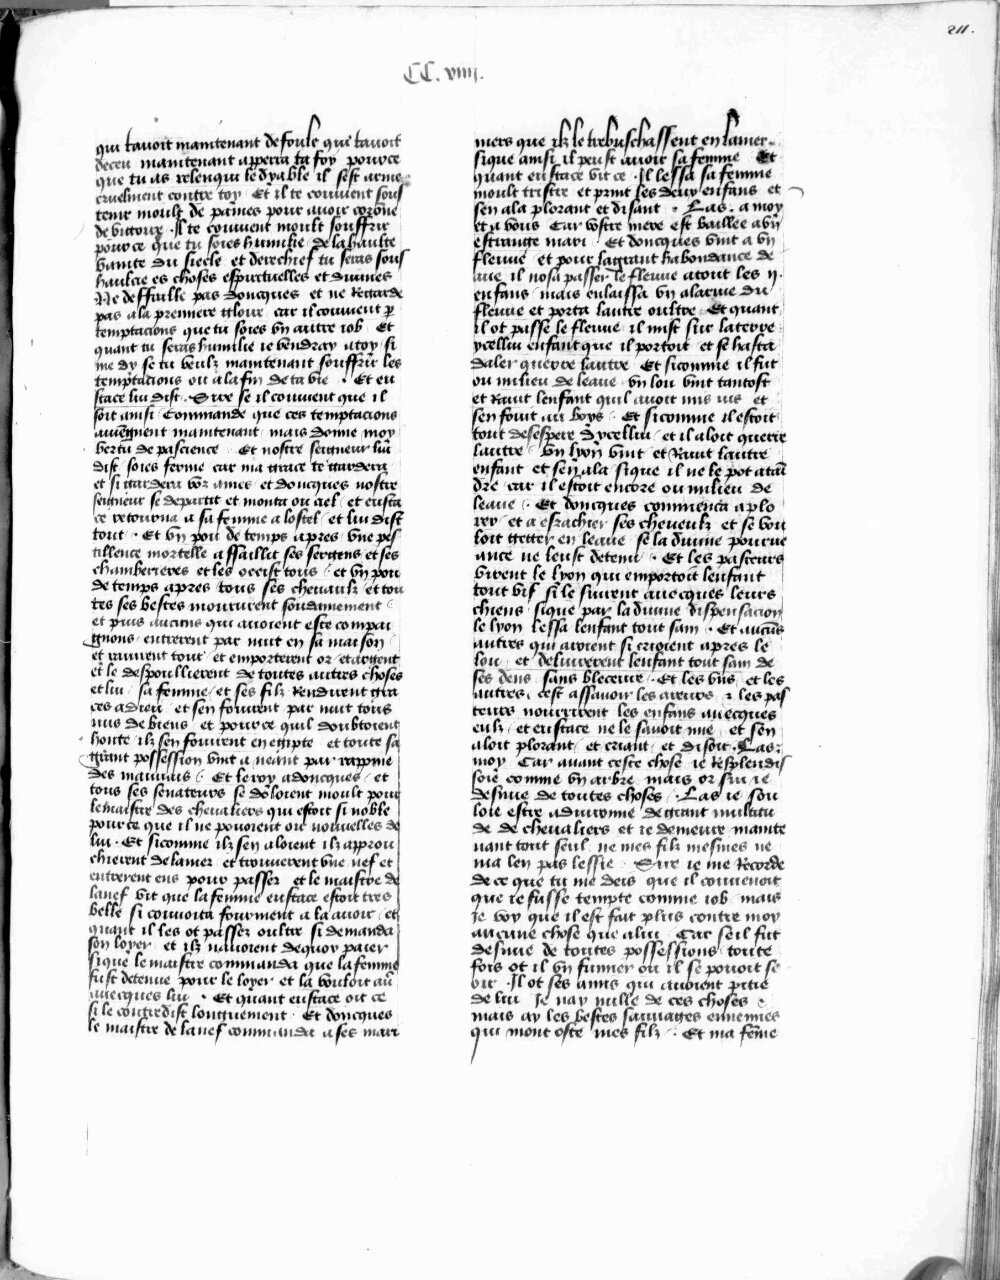 211.
CC.viiij.
qui tavoit maintenant defoule que tavoit
deceu maintenant apperra ta foy pource
que tu as relenqui le dyable il sest arme
cruelment contre toy Et il te couvient sous
tenir moult de paines pour avoir corone
de victoire. Il te couvient moult souffrir
pource que tu soies humilie de la haulte
vanite du siecle et derechief tu seras sous
haulcie es choses espirituelles et divines
Ne deffaille pas doncques et ne Regarde
pas a la premiere gloire car il couvient p
temptacions que tu soies vn autre iob Et
quant tu seras humilie ie vendray a toy si
me dy se tu veulz maintenant souffrir les
temptacions ou a la fin de ta vie . Et eu
stace lui dist . Sire se il couvient que il
soit ainsi Commande que ces temptacions
aviegnent maintenant mais donne moy
vertu de pascience Et nostre seigneur lui
dist soies ferme car ma grace te gardera
et si gardera voz ames et doncques nostre
seigneur se departit et monta ou ciel et eusta
ce retourna a sa femme a lostel et lui dist
tout . Et vn pou de temps apres vne pes
tillence mortelle assaillit ses sergens et ses
chamberieres et les occist tous et vn pou
de temps apres tous ses chevaulx et tou
tes ses bestes moururent soudainement
et puis aucuns qui avoient este compai
gnons entrerent par nuit en sa maison
et ravirent tout et emporterent or et argent
et le despoullierent de toutes autres choses
et lui sa femme et ses filz Rendirent gra
ces a dieu et sen fouirent par nuit tous
nus de biens et pource quil doubtoient
honte ilz sen fouirent en egipte et toute sa
grant possession vint a neant par rapine
des mauvais . Et le roy adoncques et
tous ses senateurs se doloient moult pour
le maistre des chevaliers qui estoit si noble
pour ce que il ne povoient oir nouvelles de
lui . Et sicomme ilz sen aloient ilz approu
chierent de la mer et trouverent vne nef et
entrerent ens pour passer et le maistre de
la nef vit que la femme eustace estoit tres
belle si couvoita fourment a la avoir et
quant il les ot passez oultre si demanda
son loyer et ilz navoient de quoy paier
sique le maistre commanda que la femme
fust detenue pour le loyer et la vouloit av
avecques lui . Et quant eustace oit ce
si le contredist longuement . Et doncques
le maistre de la nef commanda a ses mari
niers que ilz le trebuschassent en la mer
sique ainsi il peust avoir sa femme Et
quant eustace vit ce . Il lessa sa femme
moult tristre et print ses deux enfans et
sen ala plorant et disant . Las . a moy
et a vous Car vostre mere est baillee a vn
estrange mari Et doncques vint a vn
fleuve et pour la grant habondance de
aue il nosa passer le fleuve atout les ij.
enfans mais en laissa vn a la rive du
fleuve et porta lautre oultre Et quant
il ot passe le fleuve il mist sur la terre
ycellui enfant que il portoit et se hasta
daler querre lautre Et sicomme il fut
ou milieu de leaue vn lou vint tantost
et Ravit lenfant quil avoit mis ius et
sen fouit au boys . Et sicomme il estoit
tout desespere dycellui et il aloit querre
lautre vn lyon vint et Ravit lautre
enfant et sen ala sique il ne le pot atain
dre car il estoit encore ou milieu de
leaue . Et doncques commenca a plo
rer et a esrachier ses cheveulz et se vou
loit getter en leaue se la divine pourve
ance ne leust detenu . Et les pasteurs
virent le lyon qui emportoit lenfant
tout vif si le suirent avecques leurs
chiens sique par la divine dispensacion
le lyon lessa lenfant tout sain . Et aucuns
autres qui aroient si crioient apres le
lou et delivrerent lenfant tout sain de
ses dens sans bleceure . Et les vns et les
autres cest assavoir les areurs et les pas
teurs nourrirent les enfans avecques
eulx et eustace ne le savoit mie et sen
aloit plorant et criant et disoit . Las
moy Car avant ceste chose ie Resplendis
soie comme vn arbre mais or sui ie
desnue de toutes choses . Las ie sou
loie estre advironne de grant multitu
de de chevaliers et ie demeure mainte
nant tout seul ne mes filz mesmes ne
ma len pas lessie . Sire ie me Recorde
de ce que tu me deis que il couvenoit
que ie fusse tempte comme iob mais
Je voy que il est fait plus contre moy
aucune chose que a lui Car se il fut
desnue de toutes possessions toute
fois ot il vn fumier ou il se povoit se
oir . Il ot ses amis qui avoient pitie
de lui Je nay nulle de ces choses .
mais ay les bestes sauvages ennemies
qui mont oste mes filz . Et ma feme